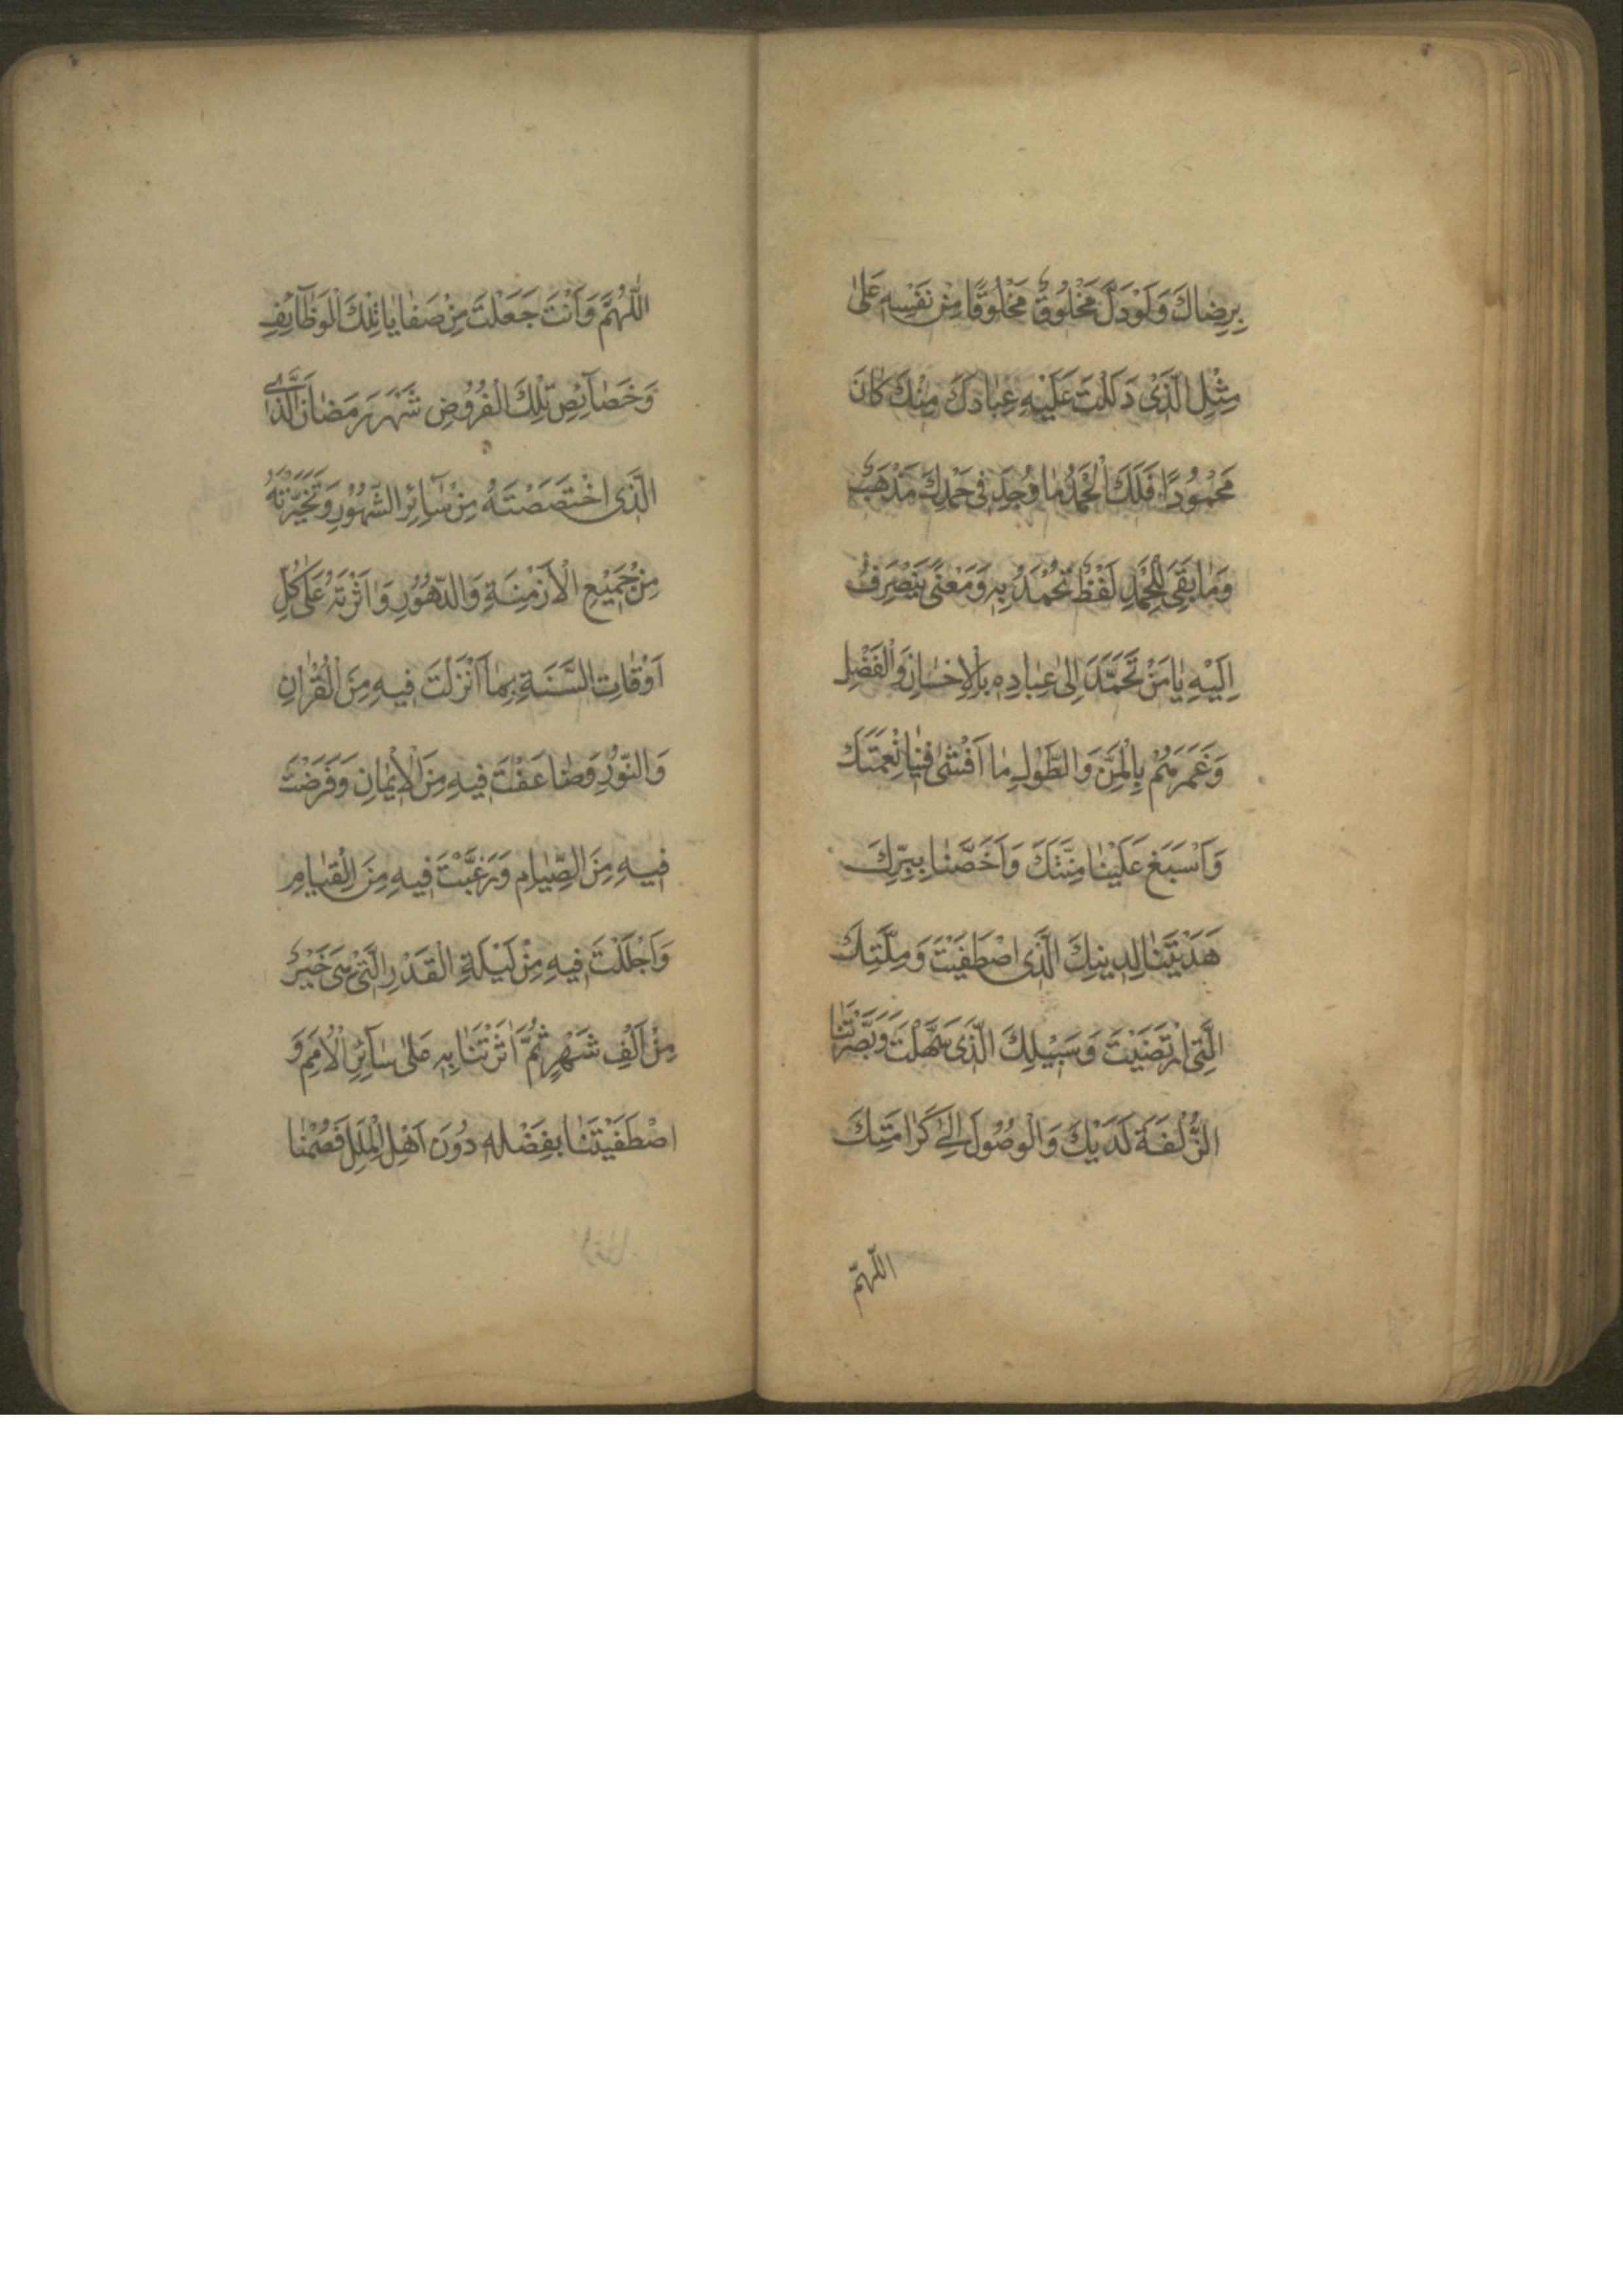 بِرِضاكَ وَلَوْدَلَّ مَخْلُوقٌ مَخْلُوقًا مِنْ نَفْسِهِ عَلىٰ
مِثْلِ الَّذَى دَلَلْتَ عَلَيْهِ عِبادَكَ مِنْكَ كانَ
مَحْمُودًا فَلَكَ الْحَمْدُ ما وُجِدَ فى حَمْدِكَ مَذْهَبٌ
وَما بَقِىَ لِلْحَمْدِ لَفْظٌ تُحْمَدُ بِهِ وَمَعْنًى يَنْصَرِفُ
اِلَيْهِ يا مَنْ تَحَمَّدَ اِلىٰ عِبادِهِ بِالْاِحْسانِ وَالْفَضْلِ
وَغَمَرَهُمْ بِالْمَنِّ وَالطَّوْلِ ما اَفْشىٰ فينا نِعْمَتَكَ
وَاَسْبَغَ عَلَيْنا مِنَّتَكَ وَاَخَصَّنا بِبِرِّكَ
هَدَيْتَنا لِدينِكَ الَّذَى اصْطَفَيْتَ وَمِلَّتِكَ
الَّتِى ارْتَضَيْتَ وَسَبيْلِكَ الَّذَى سَهَّلْتَ وَبَصَّرْتَنا
الزُّلْفَةَ لَدَيْكَ وَالْوُصُولَ اِلىٰ كَرامَتِكَ
اللّهمّ
اللّٰهُمَّ وَاَنْتَ جَعَلْتَ مِنْ صَفايا تِلْكَ الْوَظآئِفِ
وَخَصآئِصِ تِلْكَ الْفُرُوضِ شَهْرَ رَمَضانَ الَّذى
الَّذَى اخْتَصَصْتَهُ مِنْ سآئِرِ الشُّهُوْرِ وَتَخَيَّرْتَهُ
مِنْ جَميْعِ الْاَزْمِنَةِ وَالدُّهُوْرِ وَاٰثَرْتَهُ عَلىٰ كُلِّ
اَوْقاتِ السَّنَةِ بِما اَنْزَلْتَ فيهِ مِنَ الْقُرْاٰنِ
وَالنُّوْرِ وَضاعَفْتَ فيهِ مِنَ الْاِيْمانِ وَفَرَضْتَ
فيهِ مِنَ الصِّيامِ وَرَغَّبْتَ فيهِ مِنَ الْقِيامِ
وَاَجْلَلْتَ فيهِ مِنْ لَيْلَةِ الْقَدْرِ الَّتى هِىَ خَيْرٌ
مِنْ اَلْفِ شَهْرٍ ثُمَّ اٰثَرْتَنا بِهِ عَلىٰ سآئِرِ الْاُمَمِ وَ
اصْطَفَيْتَنا بِفَضْلِهِ دُوْنَ اَهْلِ الْمِلَلِ فَصُمْنا